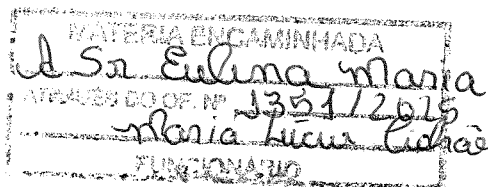 MATÉRIA ENCAMINHADA
A Sr Eulina Maria
ATRAVÉS DO OF. Nº 1351/2025
Maria Lúcia
FUNCIONÁRIO